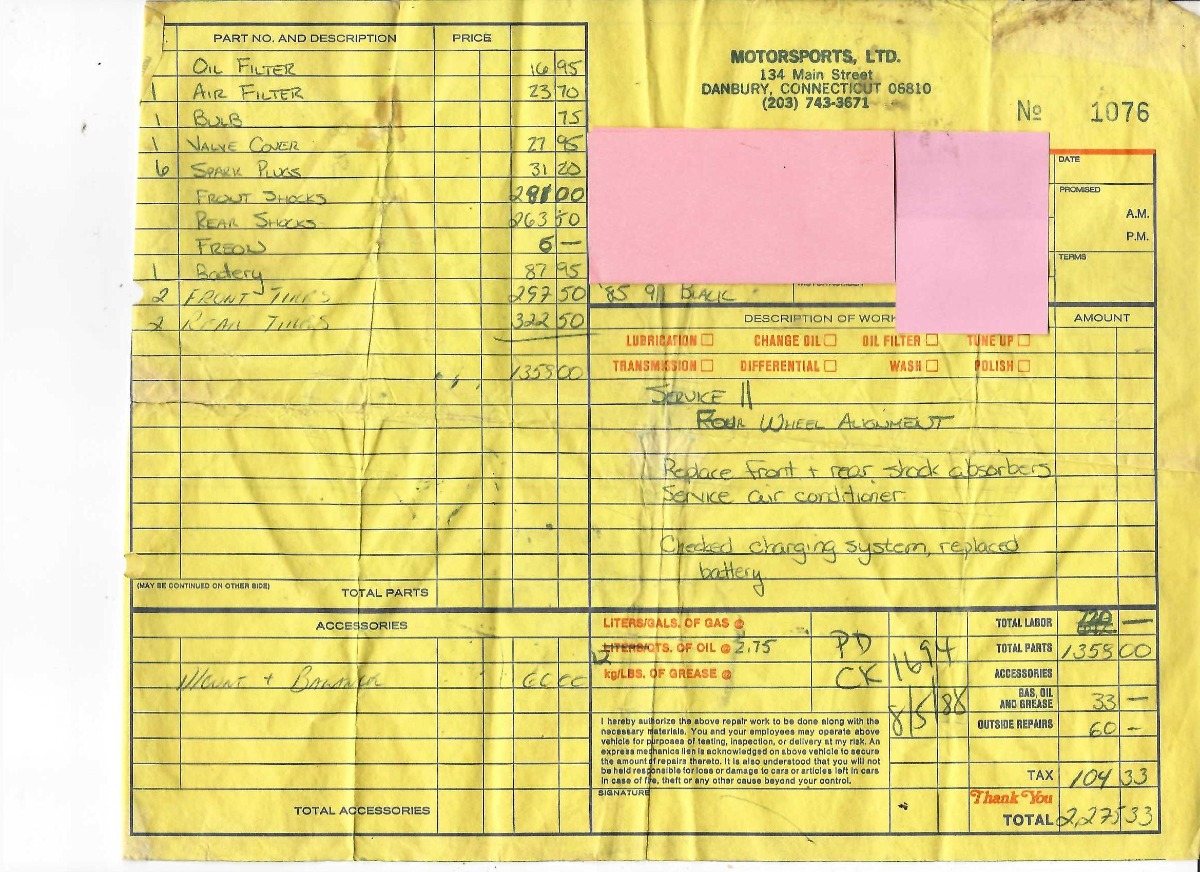 PART NO. AND DESCRIPTION PRICE
OIL FILTER 16 95
1 AIR FILTER 23 70
1 BULB 75
1 VALVE COVER 27 95
6 SPARK PLUGS 31 20
FRONT SHOCKS 00
REAR SHOCKS 263 50
FREON 6 —
1 Battery 87 95
2 FRONT TIRES 297 50
2 REAR TIRES 322 50
1358 00
(MAY BE CONTINUED ON OTHER SIDE)
TOTAL PARTS
ACCESSORIES
MOUNT + BALANCE 60 00
TOTAL ACCESSORIES
MOTORSPORTS, LTD.
134 Main Street
DANBURY, CONNECTICUT 06810
(203) 743-3671
No 1076
DATE
PROMISED
A.M.
P.M.
TERMS
'85 911 BLACK
DESCRIPTION OF WORK AMOUNT
LUBRICATION CHANGE OIL OIL FILTER TUNE UP
TRANSMISSION DIFFERENTIAL WASH POLISH
SERVICE II
FOUR WHEEL ALIGNMENT
Replace front + rear shock absorbers
Service air conditioner
Checked charging system, replaced
battery
LITERS/GALS. OF GAS @
12 LITERS/QTS. OF OIL @ 2.75
kg/LBS. OF GREASE @
PD
CK 1694
8/5/88
TOTAL LABOR 720 —
TOTAL PARTS 1358 00
ACCESSORIES
GAS, OIL
AND GREASE 33 —
OUTSIDE REPAIRS 60 —
TAX 104 33
Thank You
TOTAL 2,275 33
I hereby authorize the above repair work to be done along with the
necessary materials. You and your employees may operate above
vehicle for purposes of testing, inspection, or delivery at my risk. An
express mechanics lien is acknowledged on above vehicle to secure
the amount of repairs thereto. It is also understood that you will not
be held responsible for loss or damage to cars or articles left in cars
in case of fire, theft or any other cause beyond your control.
SIGNATURE